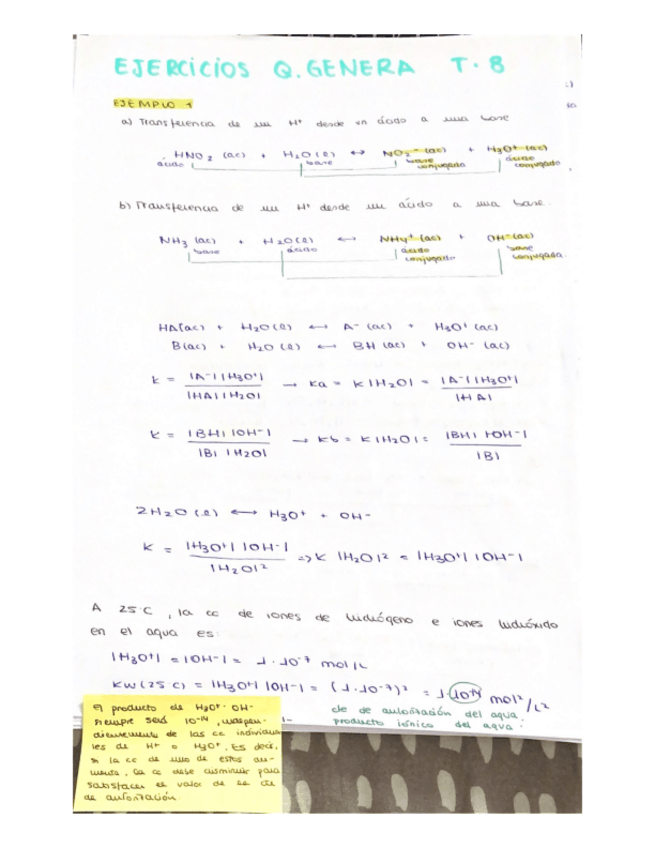 EJERCICIOS Q.GENERA T.8
EJEMPLO 1
a) Transferencia de un H+ desde un ácido a una base
HNO2 (ac) + H2O(l) ↔ NO2- (ac) + H3O+ (ac)
ácido base base conjugada ácido conjugada
b) Transferencia de un H+ desde un ácido a una base.
NH3 (ac) + H2O(l) ↔ NH4+ (ac) + OH- (ac)
base ácido ácido conjugado base conjugada
HA(ac) + H2O(l) ↔ A- (ac) + H3O+ (ac)
B(ac) + H2O (l) ↔ BH (ac) + OH- (ac)
K = |A-||H3O+| / |HA||H2O| → Ka = K|H2O| = |A-||H3O+| / |HA|
K = |BH||OH-| / |B||H2O| → Kb = K|H2O| = |BH||OH-| / |B|
2H2O (l) ↔ H3O+ + OH-
K = |H3O+||OH-| / |H2O|2 => K |H2O|2 = |H3O+||OH-|
A 25°C, la cc de iones de hidrógeno e iones hidróxido
en el agua es:
|H3O+| = |OH-| = 1·10-7 mol/L
KW(25°C) = |H3O+||OH-| = (1·10-7)2 = 1·10-14 mol2/L2
cte de autoionización del agua
producto iónico del agua:
el producto de H3O+ · OH-
siempre será 10-14, indepen-
dientemente de las cc individua
les de H+ o H3O+. Es decir,
si la cc de uno de estos au-
menta, la cc debe disminuir para
satisfacer el valor de la cte
de autoionización